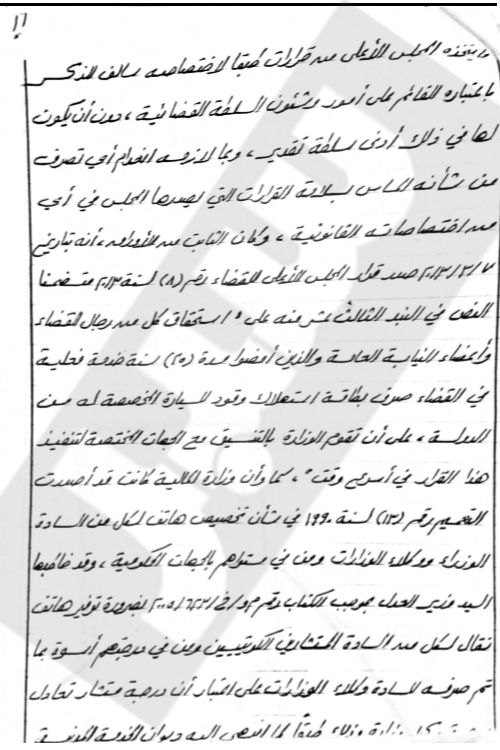 ١٦
ما يتخذه المجلس الأعلى من قرارات طبقا لاختصاصه سالف الذكر
باعتباره القائم على أمور وشئون السلطة القضائية ، دون أن يكون
لها في ذلك أدنى سلطة تقدير ، وبما لازمه انعدام أي تصرف
من شأنه المساس بسلامة القرارات التي يصدرها المجلس في أي
من اختصاصاته القانونية ، وكان الثابت من الأوراق ، أنه بتاريخ
صدر قرار المجلس الأعلى للقضاء رقم (٨) لسنة ٢٠١٣ متضمنا
النص في البند الثالث عشر منه على " استحقاق كل من رجال القضاء
وأعضاء النيابة العامة والذين أمضوا مدة (٢٠) سنة خدمة فعلية
في القضاء صرف بطاقة استهلاك وقود للسيارة المخصصة له من
الدولة ، على أن تقوم الوزارة بالتنسيق مع الجهات المختصة لتنفيذ
هذا القرار في أسرع وقت " ، كما وأن وزارة المالية كانت قد أصدرت
التعميم رقم (١٣) لسنة ١٩٩٠ في شأن تخصيص هاتف لكل من السادة
الوزراء ووكلاء الوزارات ومن في مستواهم بالجهات الحكومية ، وقد خاطبها
السيد وزير العدل بموجب الكتاب رقم بضرورة توفير هاتف
نقال لكل من السادة المستشارين الكويتيين ومن في درجتهم أسوة بما
تم صرفه للسادة وكلاء الوزارات على اعتبار أن درجة مستشار تعادل
وزارة طبقا لما انتهى إليه ديوان الخدمة المدنية